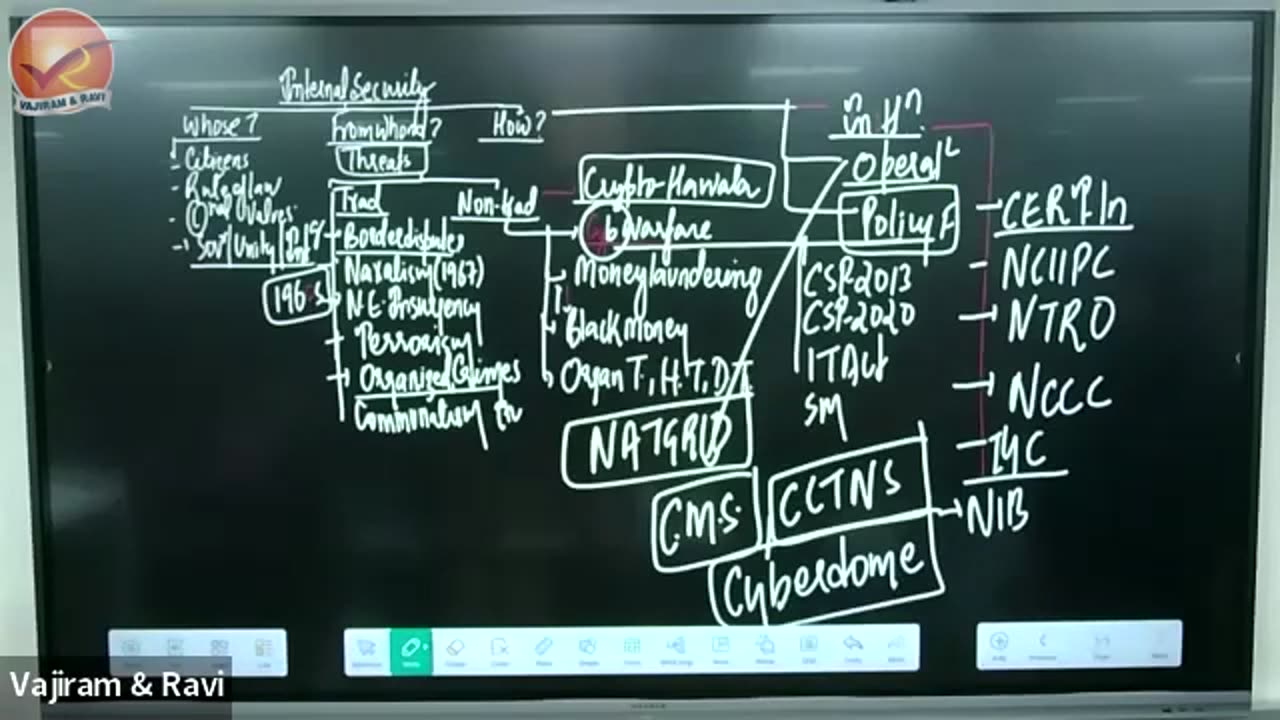 VAJIRAM & RAVI
Internal Security
Whose?
- Citizens
- Rule of law
From whom?
Threats
Trad
Border disputes
Naxalism (1967)
N.E. Insurgency
Terrorism
Organized Crimes
Communalism
How?
Non-trad
Crypto-Hawala
Warfare
Money laundering
Black money
Organ T., H.T, D.T.
NATGRID
C.M.S.
CCTNS
Cyberdome
Policy F
CSP-2013
CSP-2020
IT Act
SM
CERT In
NCIIPC
NTRO
NCCC
I4C
NIB
Vajiram & Ravi